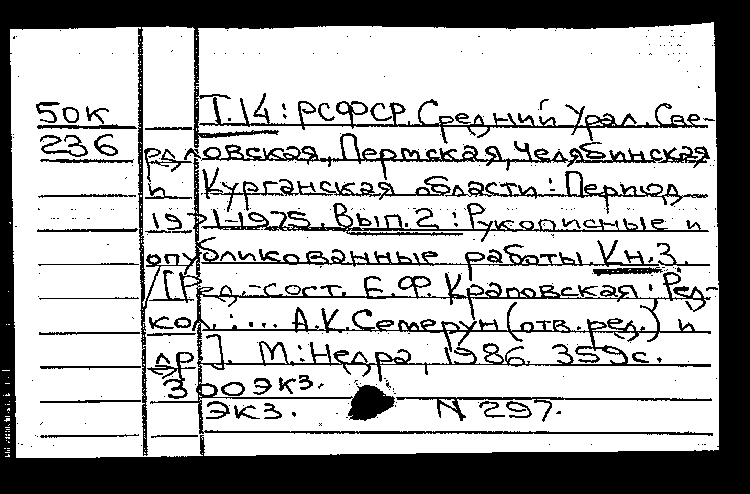 50К Т.14: РСФСР. Средний Урал. Све-
236 рдловская, Пермская, Челябинская
и Курганская области: Период
1971-1975. Вып.2: Рукописные и
опубликованные работы. Кн.3.
/[Ред.-сост. Е.Ф. Краповская; Ред-
кол.:... А.К. Семерун (отв. ред.) и
др]. М.: Недра, 1986. 359с.
300экз.
экз. N 297.